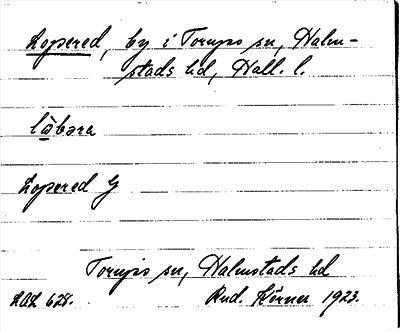 Lopered, by i Torups sn, Halm-
stads hd, Hall. l.
låbəra
Lopered G
Torups sn, Halmstads hd
LAL 628. Rud. Körner 1923.